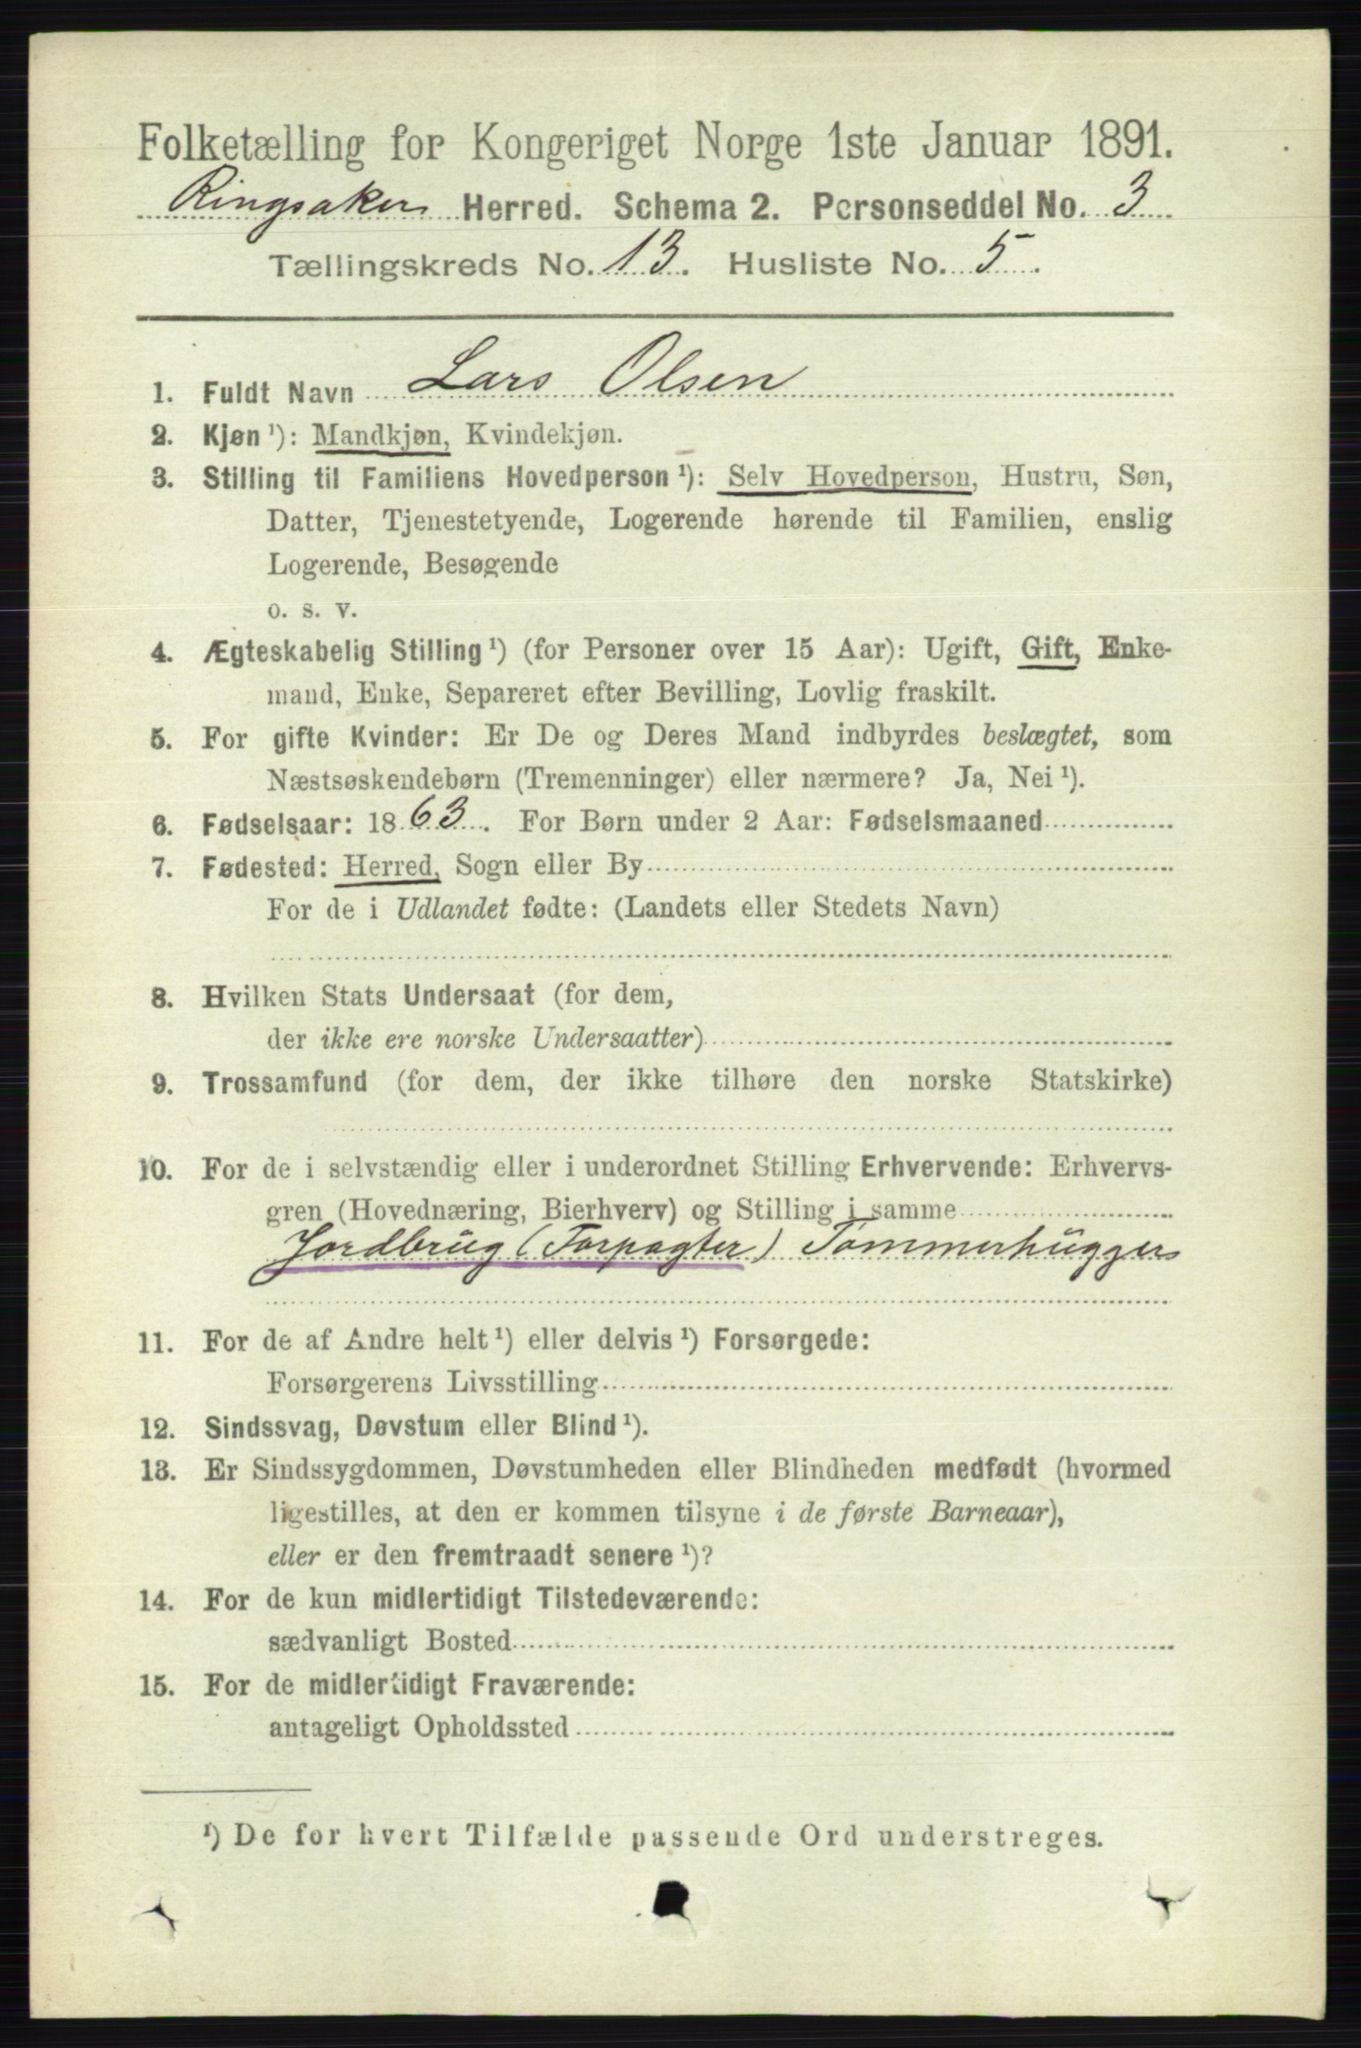 Folketælling for Kongeriget Norge 1ste Januar 1891.
Ringsakers Herred. Schema 2. Personseddel No. 3
Tællingskreds No. 13. Husliste No. 5.
1. Fuldt Navn Lars Olsen
2. Kjøn ¹): Mandkjøn, Kvindekjøn.
3. Stilling til Familiens Hovedperson ¹): Selv Hovedperson, Hustru, Søn,
Datter, Tjenestetyende, Logerende hørende til Familien, enslig
Logerende, Besøgende
o. s. v.
4. Ægteskabelig Stilling ¹) (for Personer over 15 Aar): Ugift, Gift, Enke-
mand, Enke, Separeret efter Bevilling, Lovlig fraskilt.
5. For gifte Kvinder: Er De og Deres Mand indbyrdes beslægtet, som
Næstsøskendebørn (Tremenninger) eller nærmere? Ja, Nei ¹).
6. Fødselsaar: 1863. For Børn under 2 Aar: Fødselsmaaned
7. Fødested: Herred, Sogn eller By
For de i Udlandet fødte: (Landets eller Stedets Navn)
8. Hvilken Stats Undersaat (for dem,
der ikke ere norske Undersaatter)
9. Trossamfund (for dem, der ikke tilhøre den norske Statskirke)
10. For de i selvstændig eller i underordnet Stilling Erhvervende: Erhvervs-
gren (Hovednæring, Bierhverv) og Stilling i samme
Jordbrug (Forpagter) Tømmerhuggers
11. For de af Andre helt ¹) eller delvis ¹) Forsørgede:
Forsørgerens Livsstilling
12. Sindssvag, Døvstum eller Blind ¹).
13. Er Sindssygdommen, Døvstumheden eller Blindheden medfødt (hvormed
ligestilles, at den er kommen tilsyne i de første Barneaar),
eller er den fremtraadt senere ¹)?
14. For de kun midlertidigt Tilstedeværende:
sædvanligt Bosted
15. For de midlertidigt Fraværende:
antageligt Opholdssted
¹) De for hvert Tilfælde passende Ord understreges.